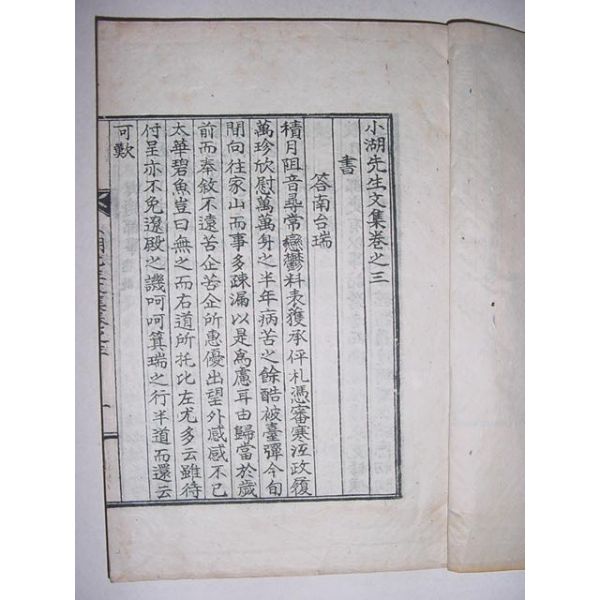 小湖先生文集卷之三
書
答南台瑞
積月阻音尋常戀鬱料表獲承伻札憑審寒沍政履
萬珍欣慰萬萬身之半年病苦之餘酷被臺彈今旬
間向往家山而事多疎漏以是為慮耳由歸當於歲
前而奉敘不遠苦企苦企所惠優出望外感感不已
太華碧魚豈曰無之而右道所托比左尤多云雖待
付呈亦不免遼殿之譏呵呵箕瑞之行半道而還云
可歎